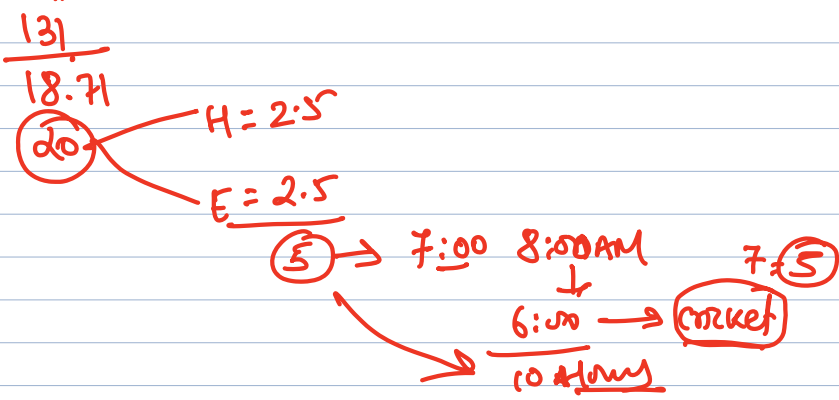 131
18.71
20
H = 2.5
E = 2.5
5 → 7:00 8:00 AM
7.5
6:00 → cricket
10 hours